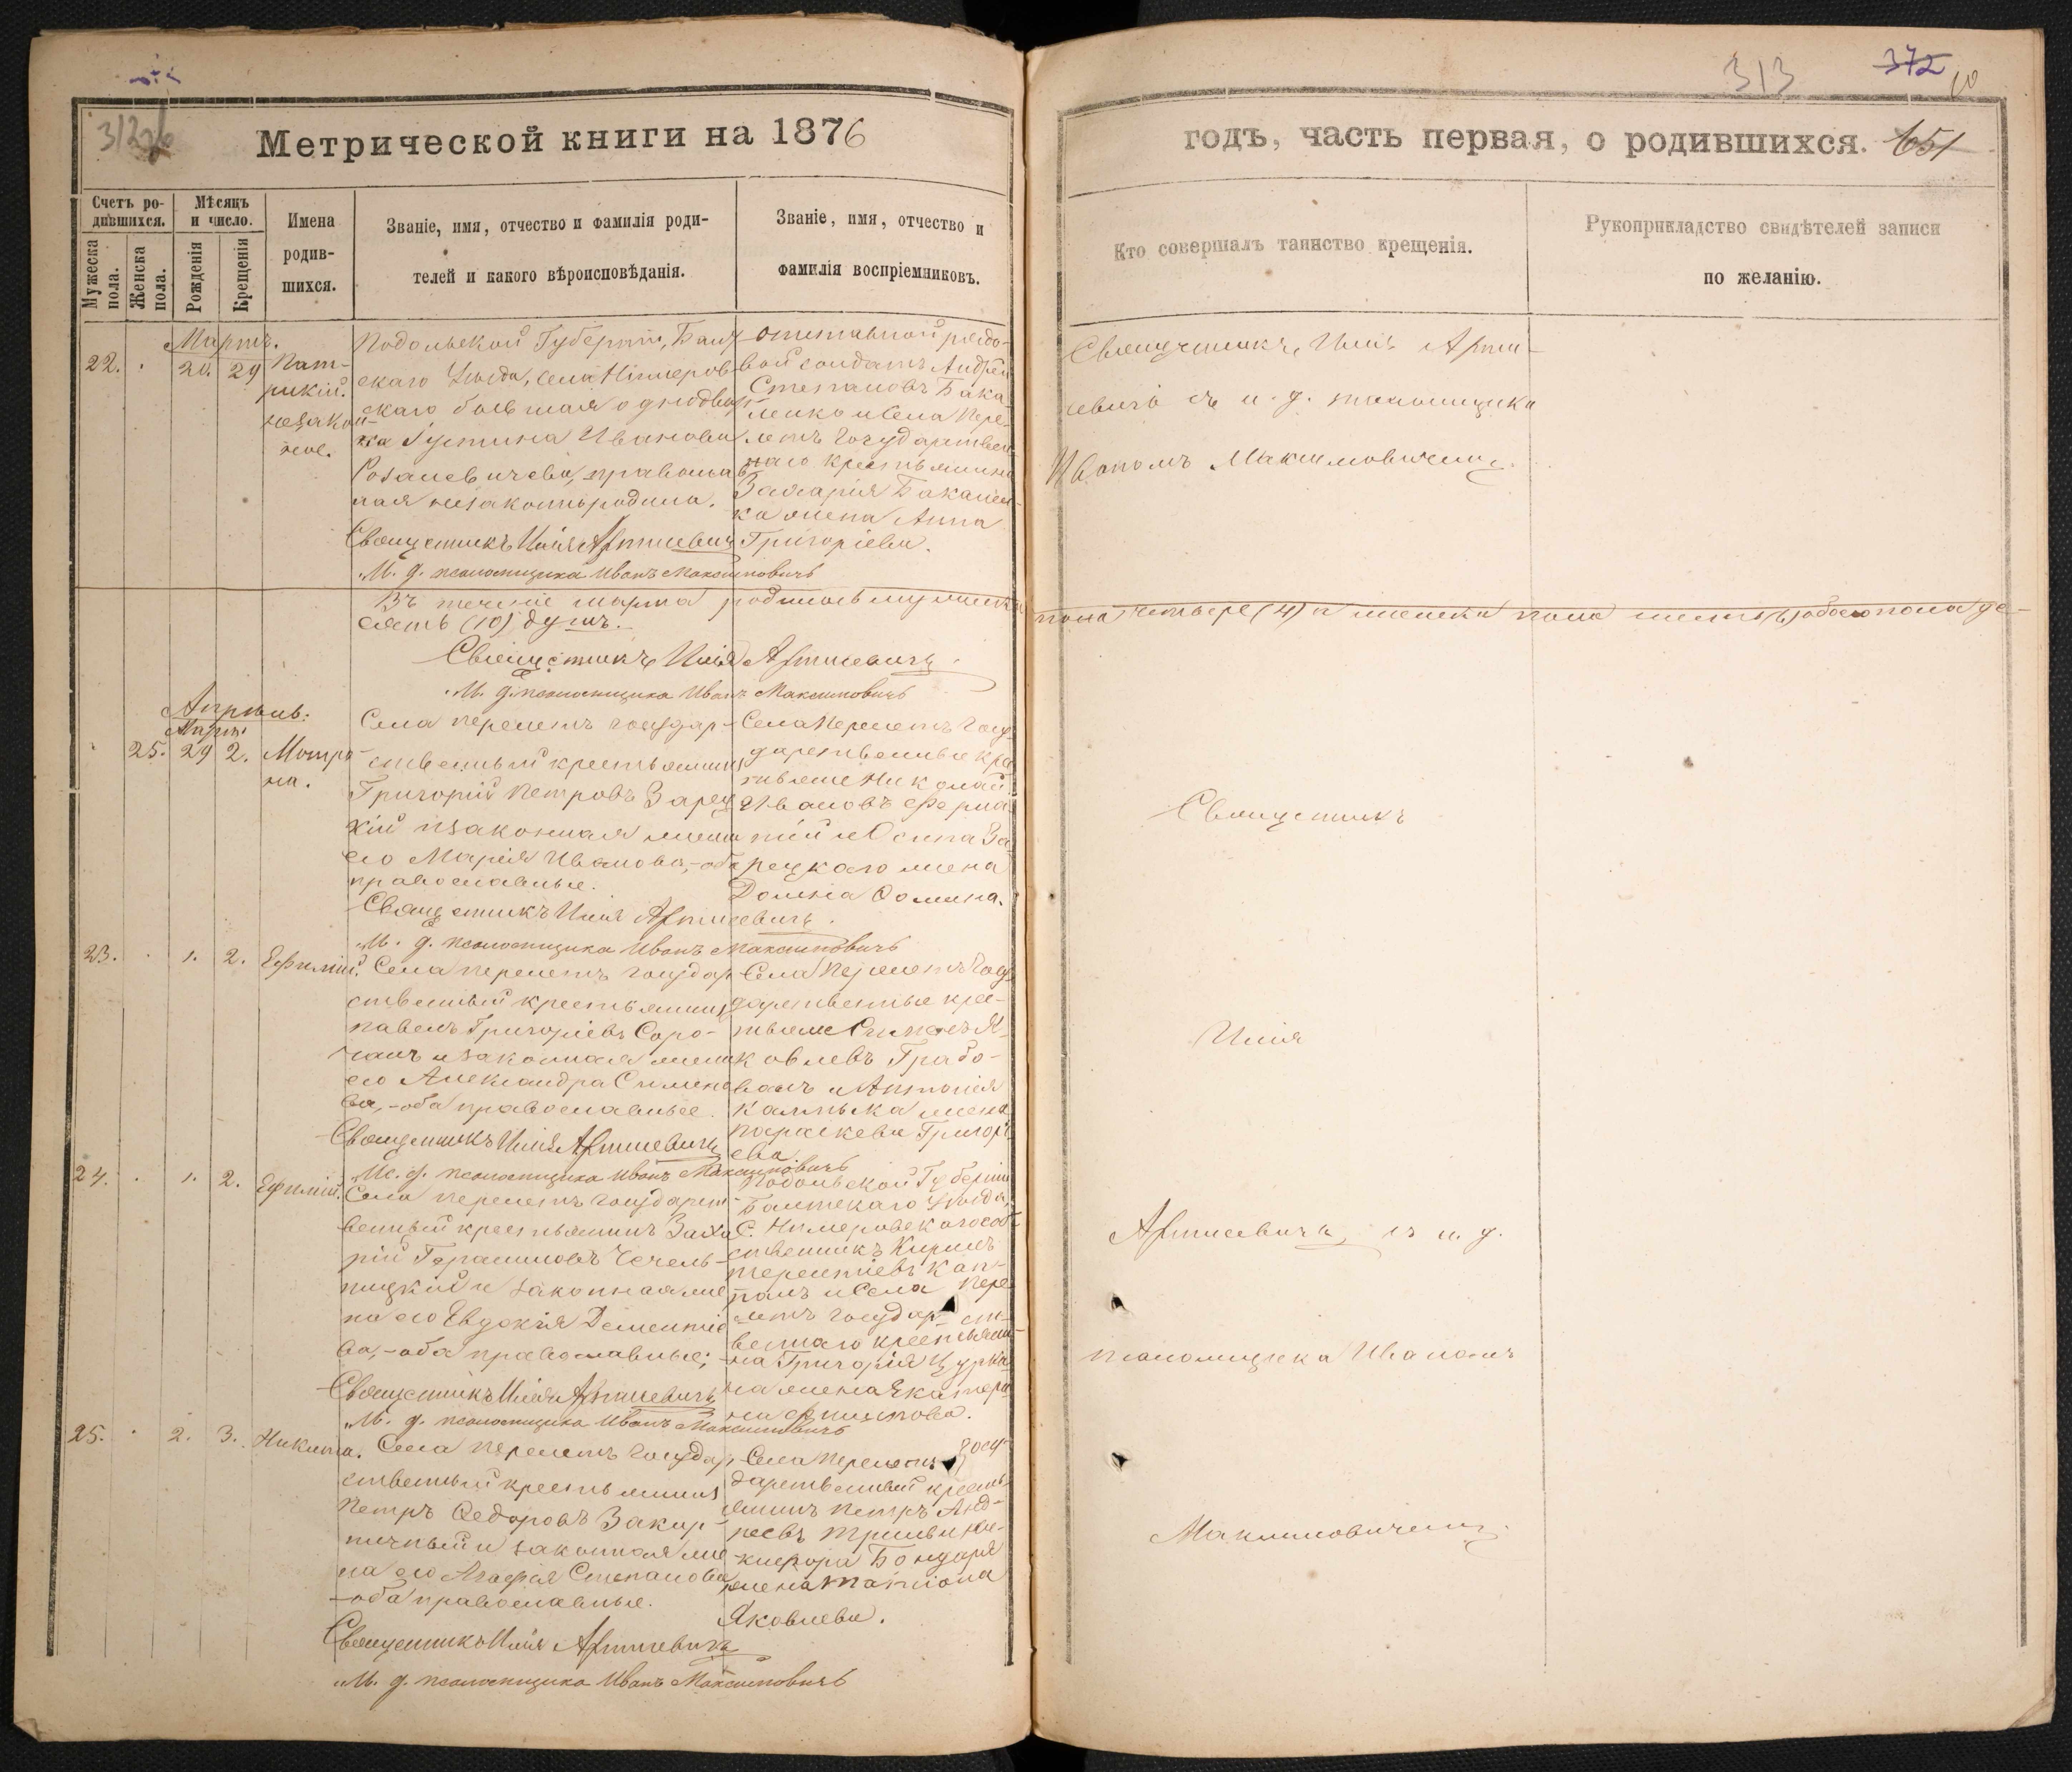 312об
Метрической книги на 1876
Счетъ ро-
дившихся.
Мѣсяцъ
и число.
Имена
родив-
шихся.
Званіе, имя, отчество и фамилія роди-
телей и какого вѣроисповѣданія.
Званіе, имя, отчество и
фамилія воспріемниковъ.
Мужеска
пола.
Женска
пола.
Рожденія
Крещенія
Мартъ.
22.
20. 29
Пат-
рикій.
незакон-
ное.
Подольской Губерніи, Балт-
скаго Уѣзда, села
бывшая однодвор-
ка Іустина Иванова
православ-
ная незаконнородила.
Священникъ Илія Артиевичъ
И. д. псаломщика Иванъ Максимовичъ
отставной рядо-
вой солдатъ Андрей
Степановъ Бака-
ленко и Села Пере-
летъ Государствен-
наго крестьянина
Захарія
жена Анна
Григоріева.
Въ теченіе марта родилось мужеска
сять (10) душъ.
Священникъ Илія Артиевичъ
И. д. псаломщика Иванъ Максимовичъ
Апрѣль.
Март.
25. 29 2.
Матро-
на.
Села Перелетъ Государ-
ственный крестьянинъ
Григорій Петровъ Зарец-
кій и законная жена
его Марія Иванова, - оба
православные.
Священникъ Илія Артиевичъ
И. д. псаломщика Иванъ Максимовичъ
Села Перелетъ Госу-
дарственные кре-
стьяне Николай
Ивановъ
и Осипа За-
рецкаго жена
Домна Фомина.
23. 1. 2. Ефимій.
Села Перелетъ Государ-
ственный крестьянинъ
Павелъ Григоріевъ Соро-
чанъ и законная жена
его Александра Симено-
ва, - оба православные.
Священникъ Илія Артиевичъ
И. д. псаломщика Иванъ Максимовичъ
Села Перелетъ Госу-
дарственные кре-
стьяне Я-
ковлевъ Грабо-
ванъ и Антонія
жена
Параскева Григорі-
ева.
24. 1. 2. Ефимій.
Села Перелетъ Государст-
венный крестьянинъ Заха-
рій Герасимовъ Чечель-
ницкій и законная же-
на его Евдокія Дементіе-
ва, - оба православные;
Священникъ Илія Артиевичъ
И. д. псаломщика Иванъ Максимовичъ
Подольской Губерніи
Балтскаго Уѣзда,
С.
Терентіевъ
и Села Пере-
летъ Государст-
веннаго крестьяни-
на Григорія Цурка-
на жена Екатери-
на Филипова.
25. 2. 3. Никита.
Села Перелетъ Государ-
ственный крестьянинъ
Петръ Федоровъ Закир-
ничный и законная же-
на его Агафія Степанова
- оба православные.
Священникъ Илія Артиевичъ
И. д. псаломщика Иванъ Максимовичъ
Села Перелетъ Госу-
дарственный кресть-
янинъ Петръ Анд-
реевъ и Ни-
кифора Бондаря
жена Татіана
Яковлева.
313
372
10
годъ, часть первая, о родившихся. 651
Кто совершалъ таинство крещенія.
Рукоприкладство свидѣтелей записи
по желанію.
Священникъ, Илія Арти-
евичъ съ и. д. псаломщика
Иваномъ Максимовичемъ.
пола четыре (4) а женска пола шесть (6) обоего пола де-
Священникъ
Илія
Артиевичъ, съ и. д.
псаломщика Иваномъ
Максимовичемъ.